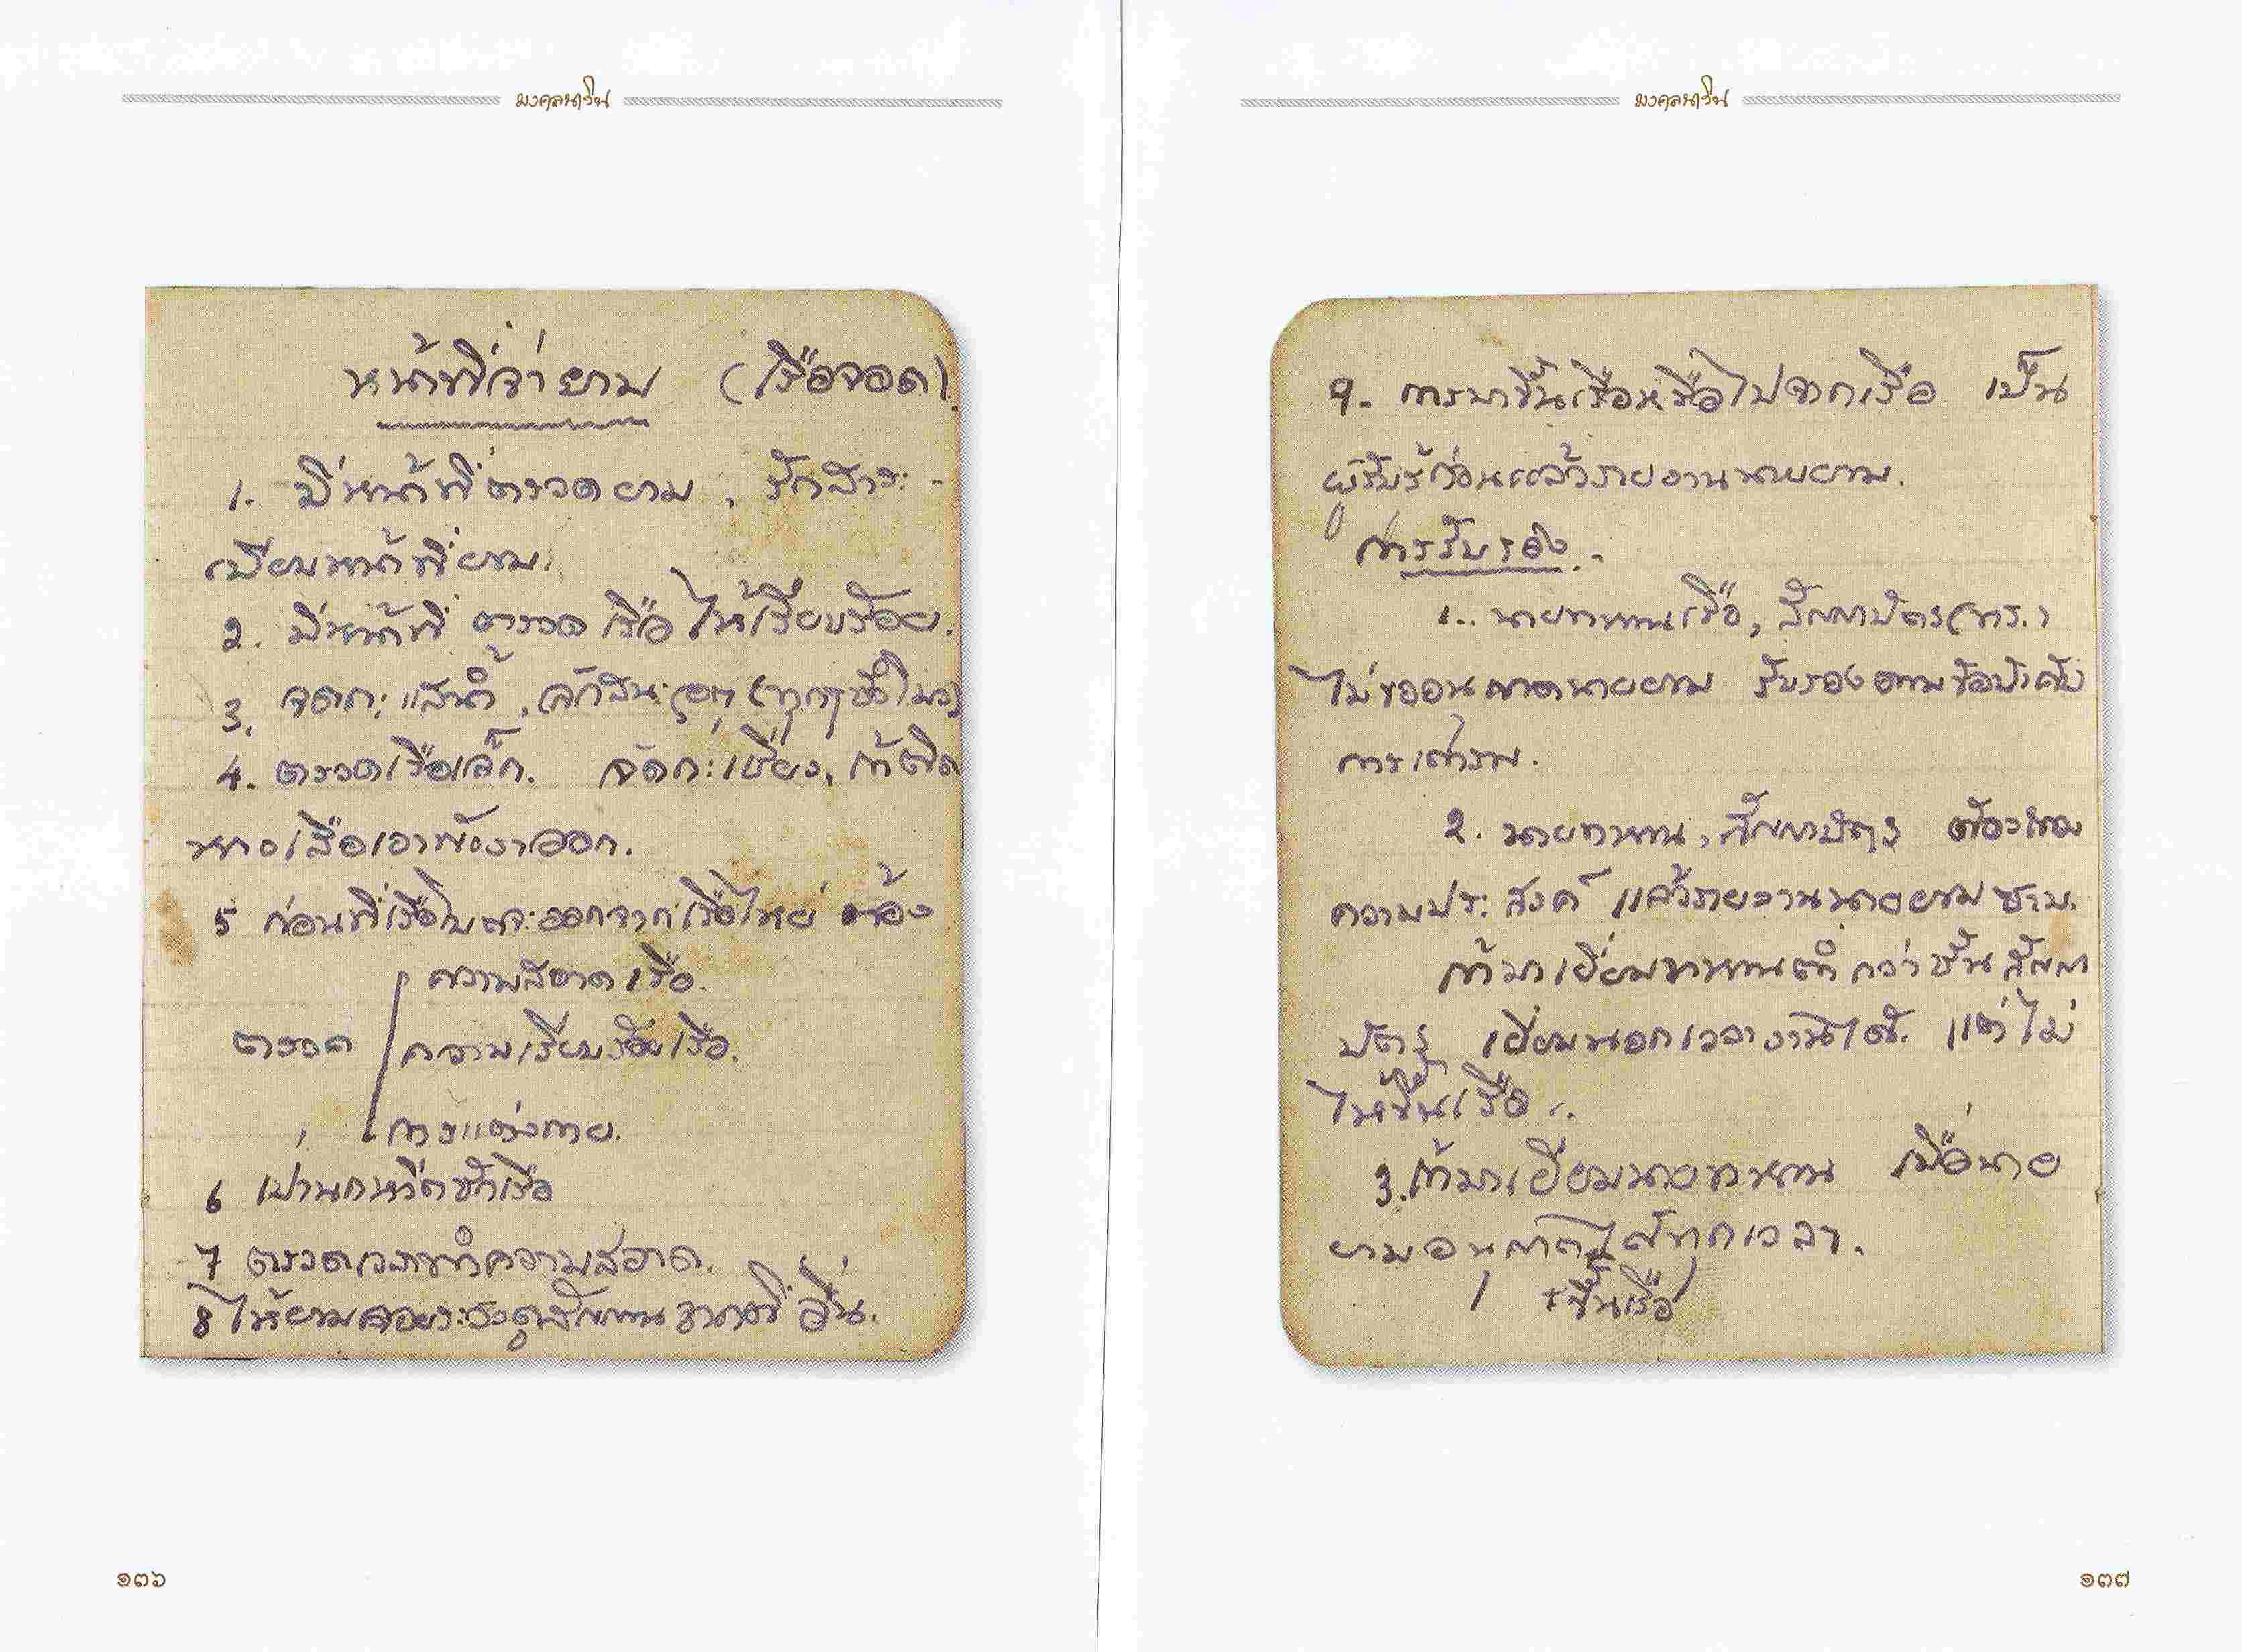 มงคลนาวิน
หน้าที่จ่ายาม (เรือจอด).
1. มีหน้าที่ตรวจยาม, รักสาระ-
เบียบหน้าที่ยาม.
2. มีหน้าที่ ตรวจเรือให้เรียบร้อย.
3. จดกะแสน้ำ, (ทุกๆชั่วโมง)
4. ตรวดเรือเล็ก. จัดกะเชียง, ถ้าติด
หางเสือเอาพังงาออก.
5 ก่อนที่เรือโบตจะออกจากเรือใหย่ ต้อง
ความสอาดเรือ.
ตรวด ความเรียบร้อยเรือ.
การแต่งกาย.
6 เป่านกหวีดชักเรือ
7 ตรวดเวลาทำความสอาด.
8 ให้ยามคอยระวังดูสัญญาน จากที่อื่น.
๑๓๖
มงคลนาวิน
9. การมาขึ้นเรือหรือไปจากเรือ เป็น
ผู้รับรู้ก่อนแล้วรายงานนายยาม.
การรับรอง.
1. นายทหานเรือ, สัญญาบัตร (ทร.)
ไม่ขออนุญาตนายยาม รับรองตามข้อบังคับ
การเคารพ.
2. นายทหาน, สัญญาบัตร ต้องถาม
ความประสงค์ แล้วรายงานนายยามซาบ.
ถ้ามาเยี่ยมทหานต่ำกว่าชั้นสัญญา
บัตร เยี่ยมนอกเวลางานได้. แต่ไม่
ให้ขึ้นเรือ.
3. ถ้ามาเยี่ยมนายทหาน เมื่อนาย
ยามอนุญาตได้ทุกเวลา.
+ขึ้นเรือ
๑๓๗